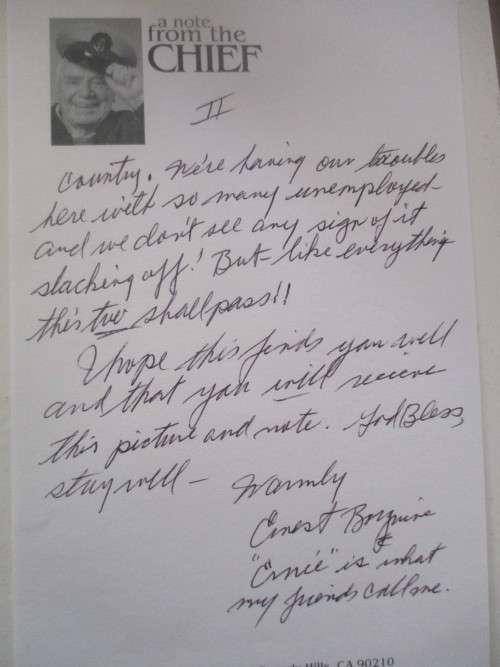 a note
from the
CHIEF
II
country. We're having our troubles
here with so many unemployed-
and we don't see any sign of it
slacking off! But like everything
this too shall pass!!
I hope this finds you well
and that you will recieve
this picture and note. God Bless,
stay well -
Warmly
Ernest Borgnine
"Ernie" is what
my friends call me.
Hills, CA 90210